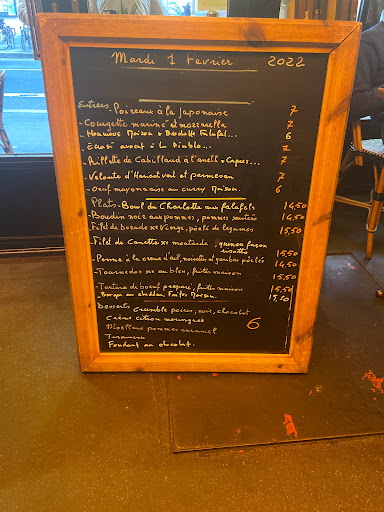 Mardi 1 Fevrier 2022
Entrées Poireaux à la Japonaise 7
- Courgette marine et mozzarella 7
- Houmous Maison & Brochette Falafel... 6
- Écrasé avocat à la Diable... 7
- Rillette de Cabillaud à l'aneth & Capres... 7
- Velouté d'Haricot vert et parmesan 7
- Oeuf mayonnaise au curry Maison. 6
Plats. Bowl du Charlotte aux falafels 14,50
- Boudin noir aux pommes, pommes sautées 14,50
Filet de Dorade sce Vierge, poélé de legumes 15,50
- Filet de Canette sce moutarde, quinoa façon risotto 15,50
- Penne à la creme d'ail, noisettes et gambas poêlés 14,50
- Tournedos sce au bleu, frites maison 15,50
- Tartare de boeuf preparé, frites maison 15,50
- Burger au cheddar, Frites Maison. 17,50
Desserts Crumble poires, noix, chocolat
Crème citron meringuée 6
Moelleux pommes caramel
Tiramisu
Fondant au chocolat.